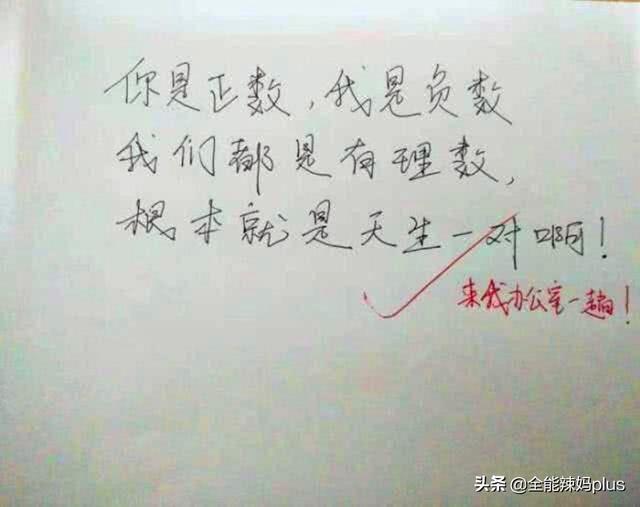 你是正数,我是负数
我们都是有理数,
根本就是天生一对啊!
来我办公室一趟!
头条 @全能辣妈plus